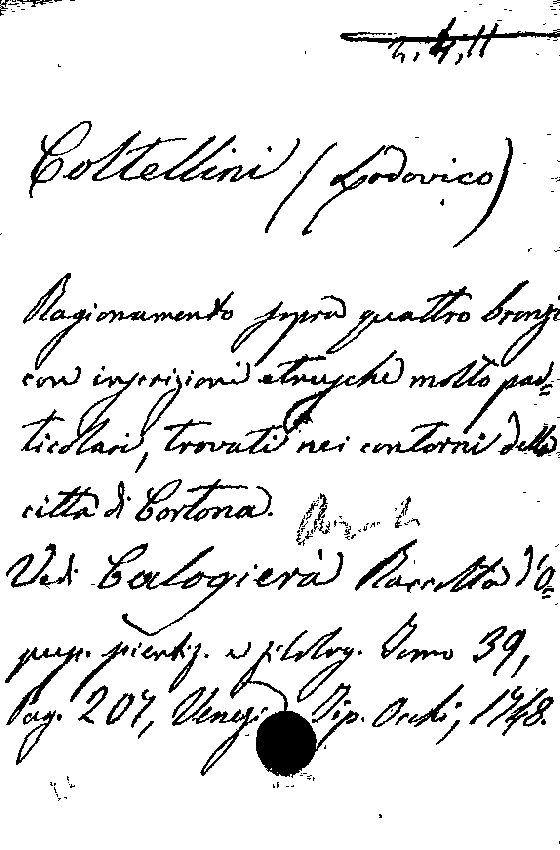 2.4.11
Coltellini (Lodovico)
Ragionamento sopra quattro bronzi
con inscrizioni etrusche molto par=
ticolari, trovati nei contorni della
città di Cortona.
Vedi Calogierà Raccolta d'O=
pusc. scientif. e filolog. Tomo 39,
Pag. 207, Venezia Tip. Occhi, 1748.